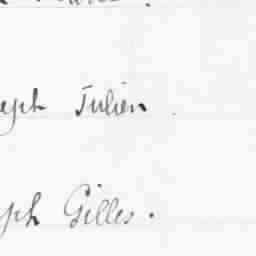 eph Julien
ph Gilles.